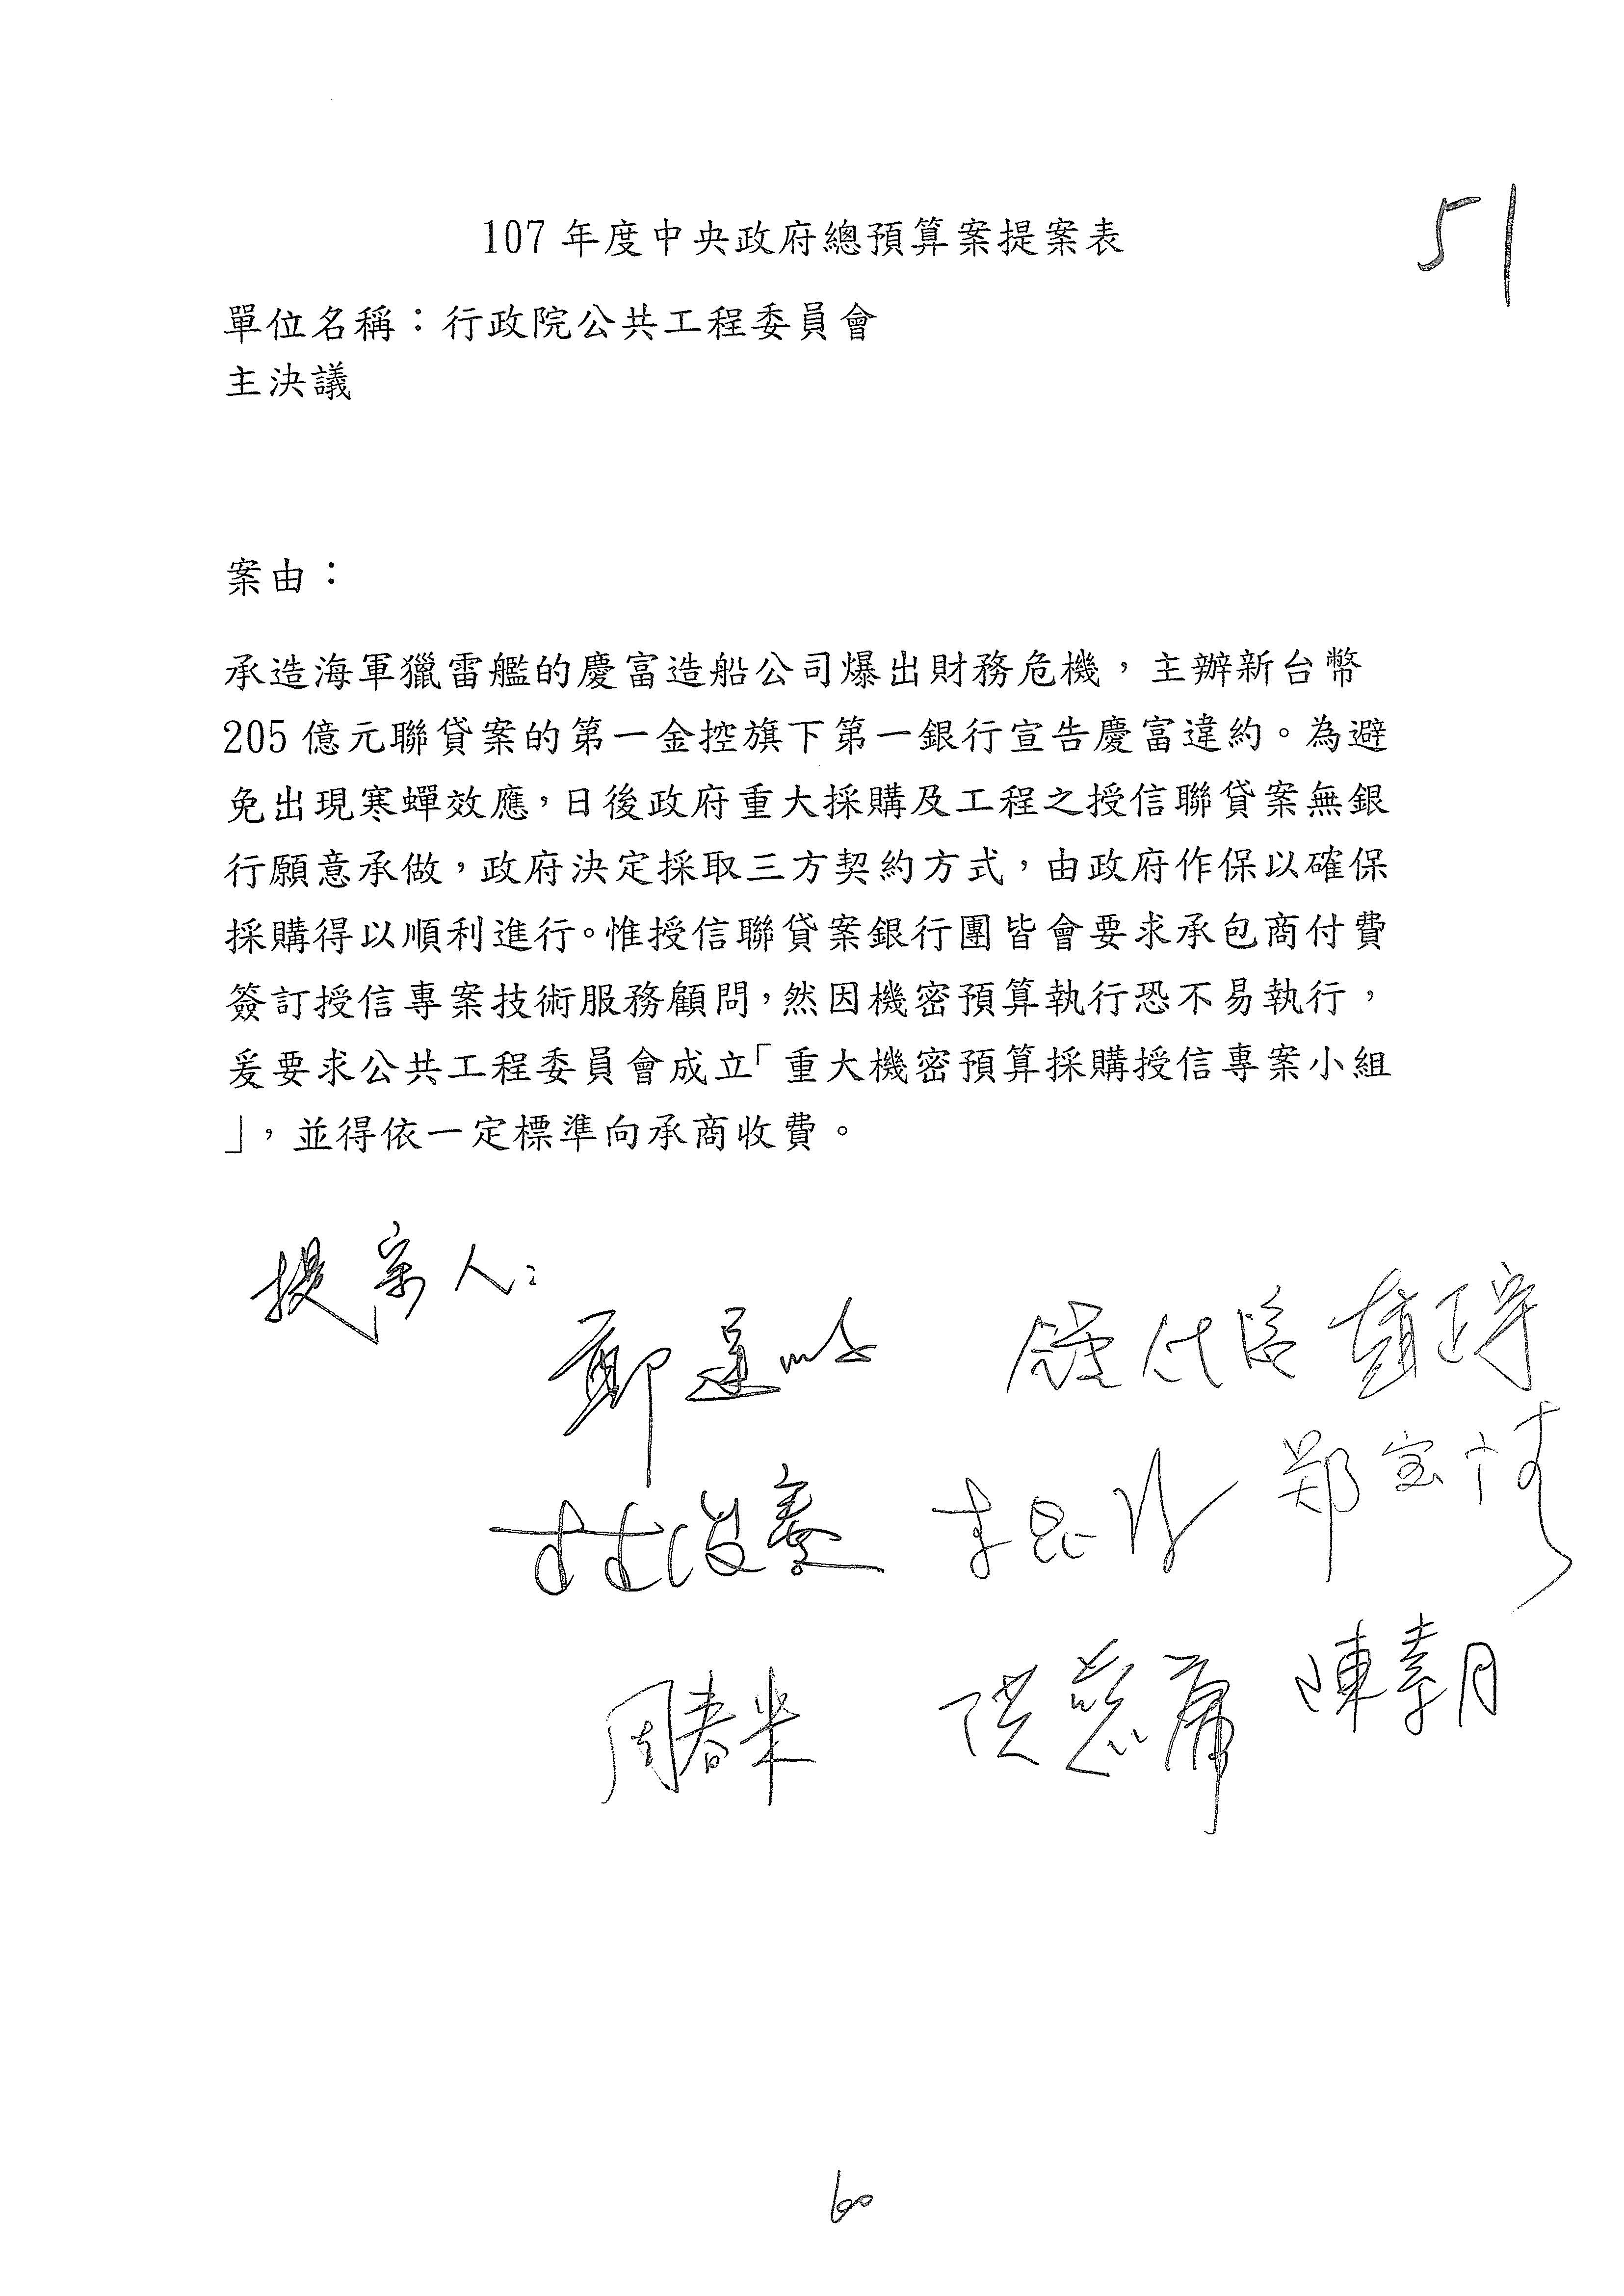 51
107 年度中央政府總預算案提案表
單位名稱：行政院公共工程委員會
主決議
案由：
承造海軍獵雷艦的慶富造船公司爆出財務危機，主辦新台幣
205 億元聯貸案的第一金控旗下第一銀行宣告慶富違約。為避
免出現寒蟬效應，日後政府重大採購及工程之授信聯貸案無銀
行願意承做，政府決定採取三方契約方式，由政府作保以確保
採購得以順利進行。惟授信聯貸案銀行團皆會要求承包商付費
簽訂授信專案技術服務顧問，然因機密預算執行恐不易執行，
爰要求公共工程委員會成立「重大機密預算採購授信專案小組
」，並得依一定標準向承商收費。
提案人：
鄭運鵬 鍾佳濱 趙正宇
林俊憲 李昆澤 鄭寶清
周春米 洪慈庸 陳素月
60